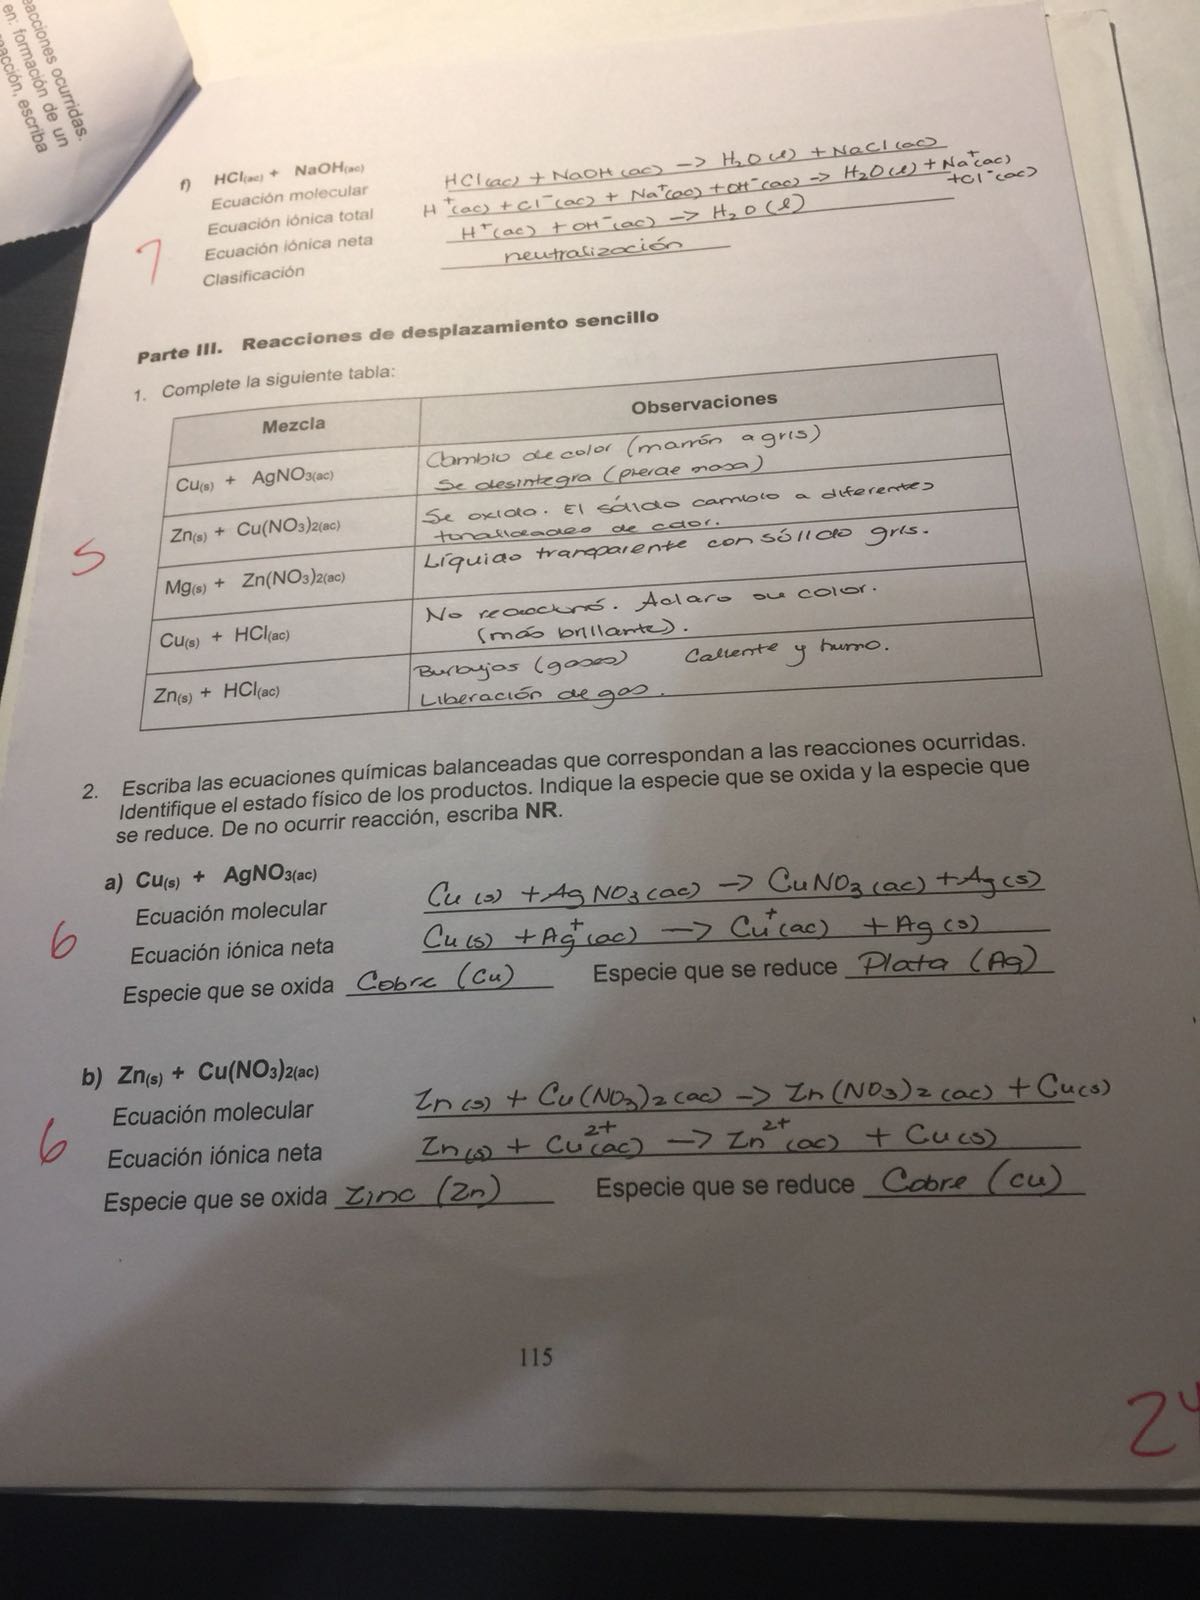 eacciones ocurridas.
en: formación de un
eacción, escriba
f) HCl(ac) + NaOH(ac)
Ecuación molecular HCl(ac) + NaOH(ac) —> H2O(l) + NaCl(ac)
Ecuación iónica total H+(ac) + Cl-(ac) + Na+(ac) + OH-(ac) —> H2O(l) + Na+(ac) + Cl-(ac)
Ecuación iónica neta H+(ac) + OH-(ac) —> H2O(l)
Clasificación neutralización
7
Parte III. Reacciones de desplazamiento sencillo
1. Complete la siguiente tabla:
Mezcla Observaciones
Cu(s) + AgNO3(ac) Cambio de color (marrón a gris)
Se desintegra (pierde masa)
Zn(s) + Cu(NO3)2(ac) Se oxida. El sólido cambio a diferentes
tonalidades de color.
5
Mg(s) + Zn(NO3)2(ac) Líquido transparente con sólido gris.
Cu(s) + HCl(ac) No reaccionó. Aclaro su color.
(más brillante).
Zn(s) + HCl(ac) Burbujas (gases) Caliente y humo.
Liberación de gas.
2. Escriba las ecuaciones químicas balanceadas que correspondan a las reacciones ocurridas.
Identifique el estado físico de los productos. Indique la especie que se oxida y la especie que
se reduce. De no ocurrir reacción, escriba NR.
a) Cu(s) + AgNO3(ac)
Ecuación molecular Cu(s) + AgNO3(ac) —> CuNO3(ac) + Ag(s)
6
Ecuación iónica neta Cu(s) + Ag+(ac) —> Cu+(ac) + Ag(s)
Especie que se oxida Cobre (Cu) Especie que se reduce Plata (Ag)
b) Zn(s) + Cu(NO3)2(ac)
Ecuación molecular Zn(s) + Cu(NO3)2(ac) —> Zn(NO3)2(ac) + Cu(s)
6
Ecuación iónica neta Zn(s) + Cu2+(ac) —> Zn2+(ac) + Cu(s)
Especie que se oxida Zinc (Zn) Especie que se reduce Cobre (Cu)
115
24